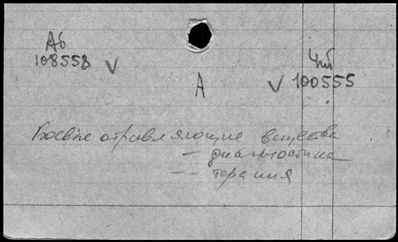 Аб
108558 V
Чиб
V 100555
А
Боевые отравляющие вещества
— диагностика
— терапия